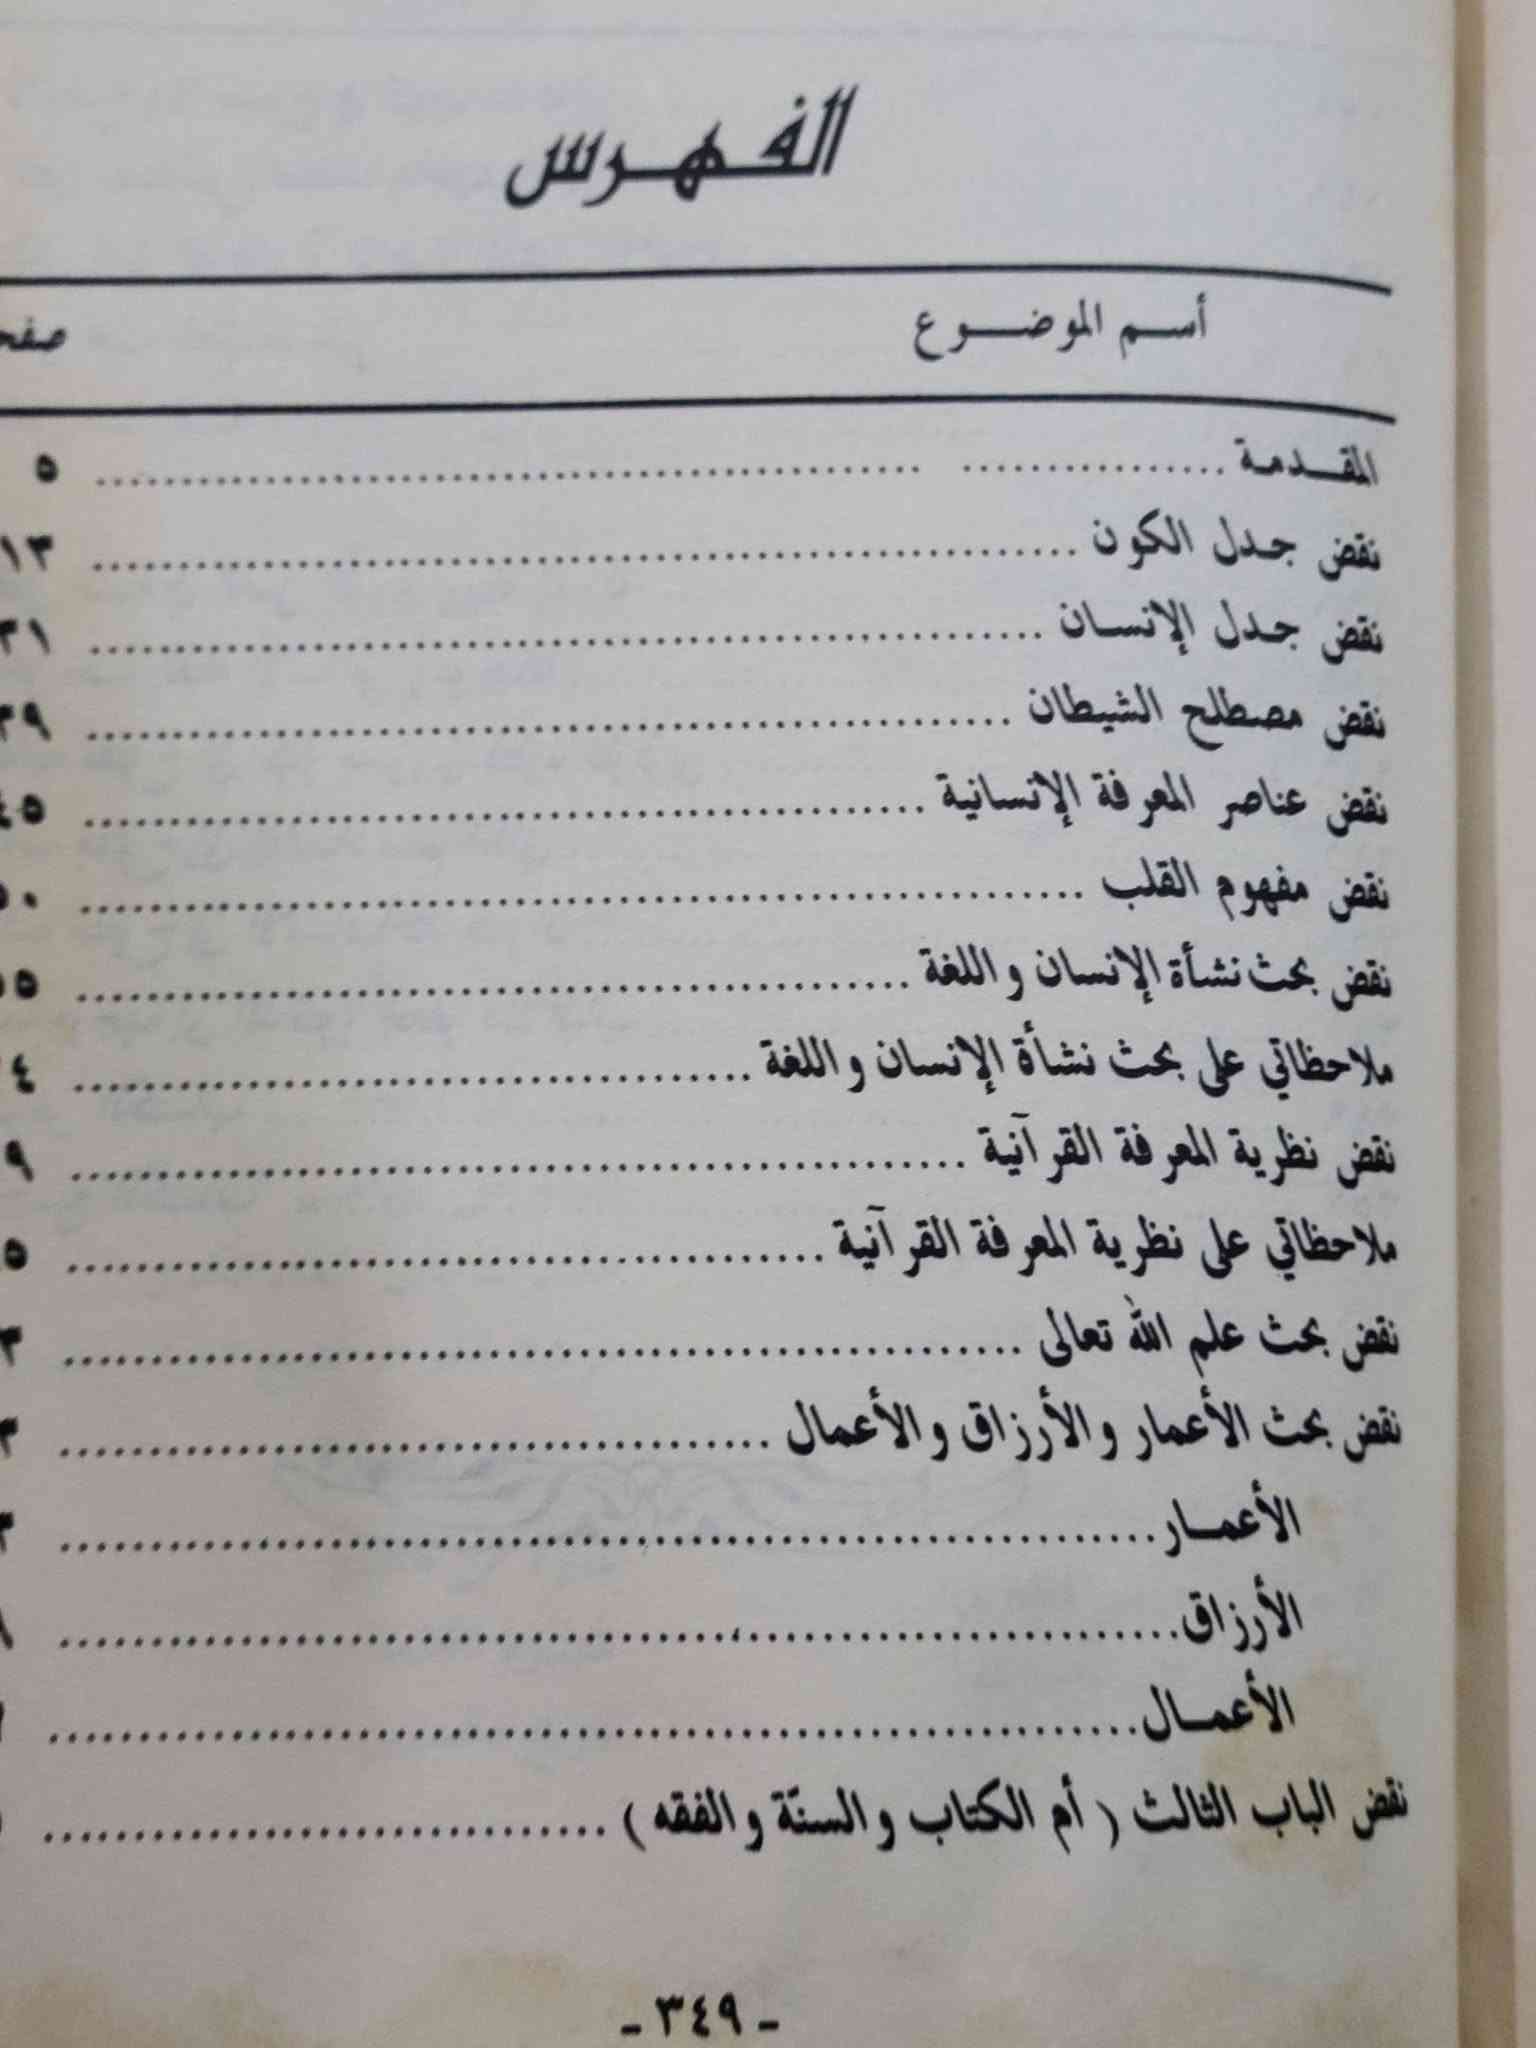 الفهرس
أسم الموضوع
المقدمة ........................ ٥
نقض جدل الكون ........................ ١٣
نقض جدل الإنسان ........................ ٣١
نقض مصطلح الشيطان ........................ ٣٩
نقض عناصر المعرفة الإنسانية ........................ ٤٥
نقض مفهوم القلب ........................ ٥٠
نقض بحث نشأة الإنسان واللغة ........................
ملاحظاتي على بحث نشأة الإنسان واللغة ........................
نقض نظرية المعرفة القرآنية ........................
ملاحظاتي على نظرية المعرفة القرآنية ........................
نقض بحث علم الله تعالى ........................
نقض بحث الأعمار والأرزاق والأعمال ........................
الأعمار ........................
الأرزاق ........................
الأعمال ........................
نقض الباب الثالث ( أم الكتاب والسنّة والفقه ) ........................
- ٣٤٩ -